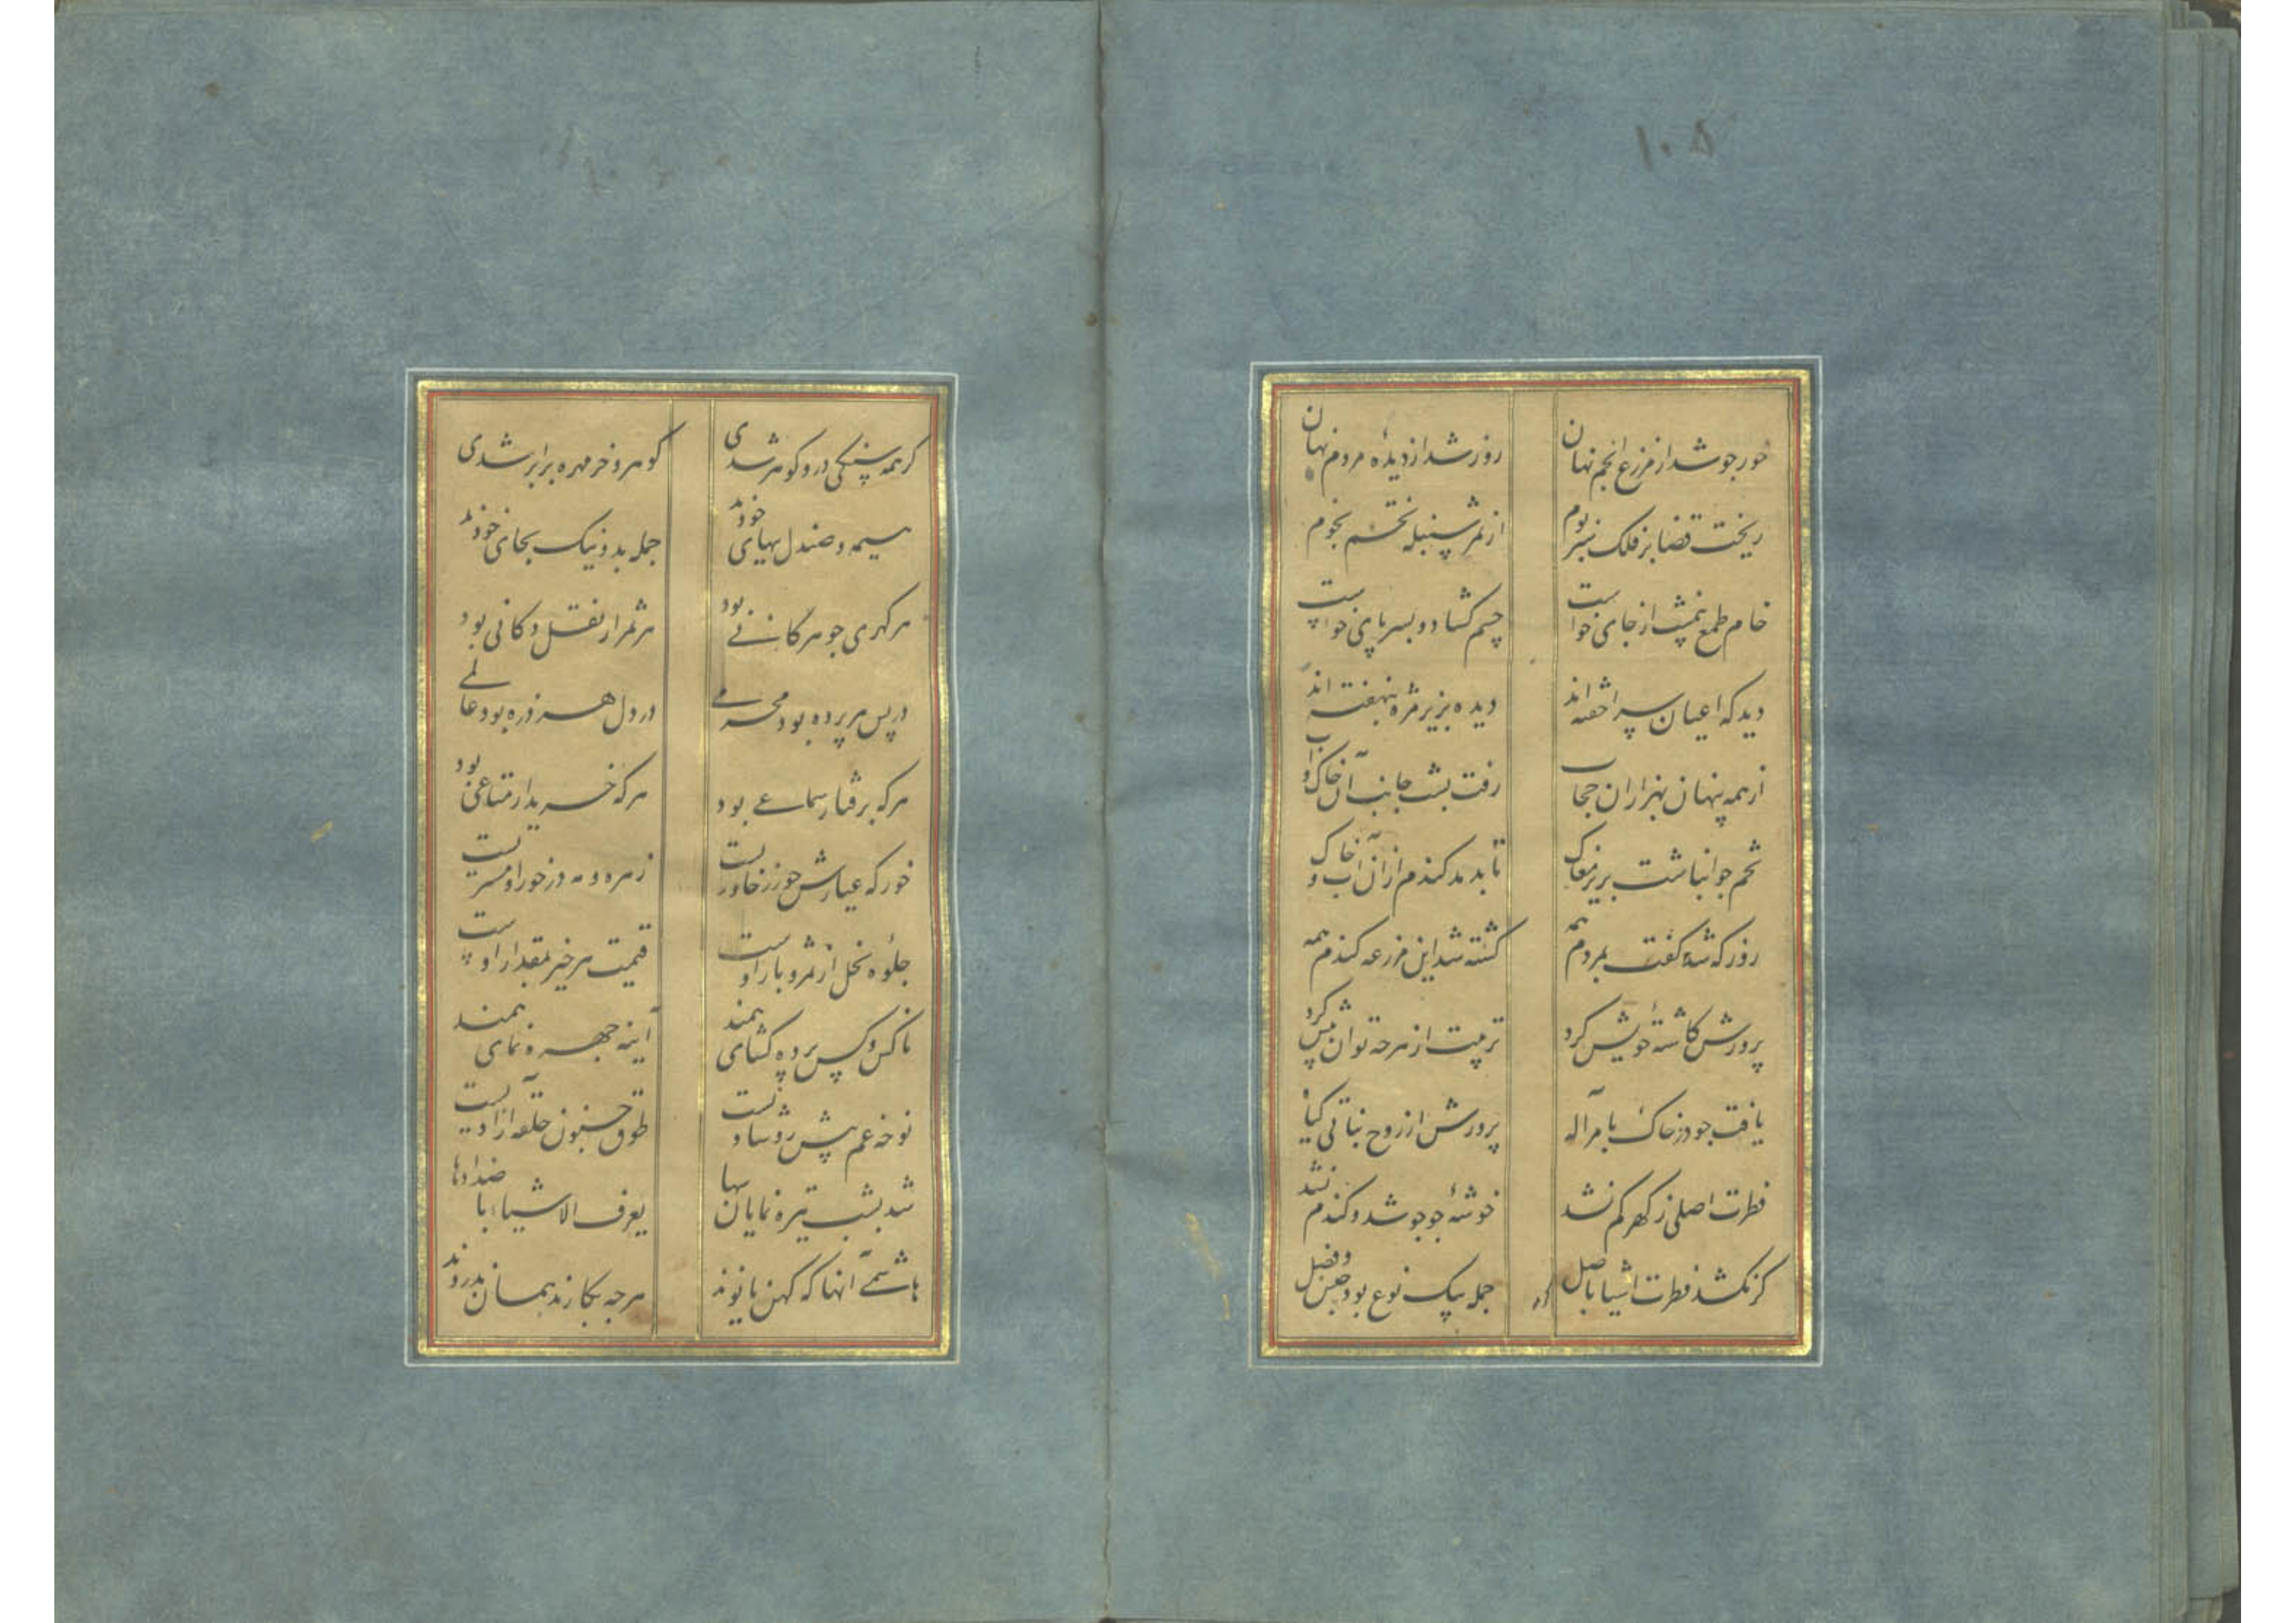 ۱۰۵
خور جو شد از مزرع انجم نهان
روز شد از دیدهٔ مردم نهان
ریخت قضا بر فلک سبز بوم
از ثمر سنبله تخم نجوم
خام طمع نیمشب از جای خواست
چشم کشاد و بسر پای خواست
دید که اعیان سرا خفته اند
دیده بزیر مژه بنهفته اند
از همه پنهان بهزاران حجاب
رفت بشب جانب آن خاک و آب
تخم جو انباشت بریز مغاک
تا بدمد کندم از آن آب و خاک
روز که شد گفت بمردم همه
کشته شد این مزرعه کندم همه
پرورش کاشتهٔ خویش کرد
تربیت از هرچه توان بیش کرد
یافت جو در خاک بامر آله
پرورش از روح نباتی کیاه
فطرت اصلی ز کهر کم نشد
خوشهٔ جو جو شد و کندم نشد
کر نکشد فطرت اشیا باصل
جمله بیک نوع بود جنس و فصل
کر
کر همه سنکی در و کوهر شدی
کوهر و خرمهره برابر شدی
هیمه و صندل بهای خودند
جمله بد و نیک بجای خودند
هر کهری جوهر کانی بود
هر ثمر از نقل دکانی بود
در پس هر پرده بود محرمی
در دل هر ذره بود عالمی
هر که برفتار سماعی بود
هر که خریدار متاعی بود
خور که عیارش جو زر خاوریست
زهره و مه در خور او مشتریست
جلوه نخل از ثمر و بار اوست
قیمت هر خیر بمقدار اوست
ناکس و کس پرده کشای همند
آینه چهره نمای همند
نوحه غم پیش رو شادیست
طوق جنون حلقه آزادیست
شد بشب تیره نمایان سها
یعرف الاشیاء باضدادها
هاشمی آنها که کهن یا نوند
هرچه بکارند همان بدروند